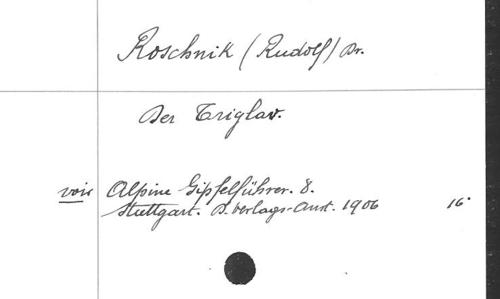 Roschnik (Rudolf) Dr.
Der Triglav.
voir Alpine Gipfelführer. 8.
Stuttgart. D. Verlags-Anst. 1906 16°